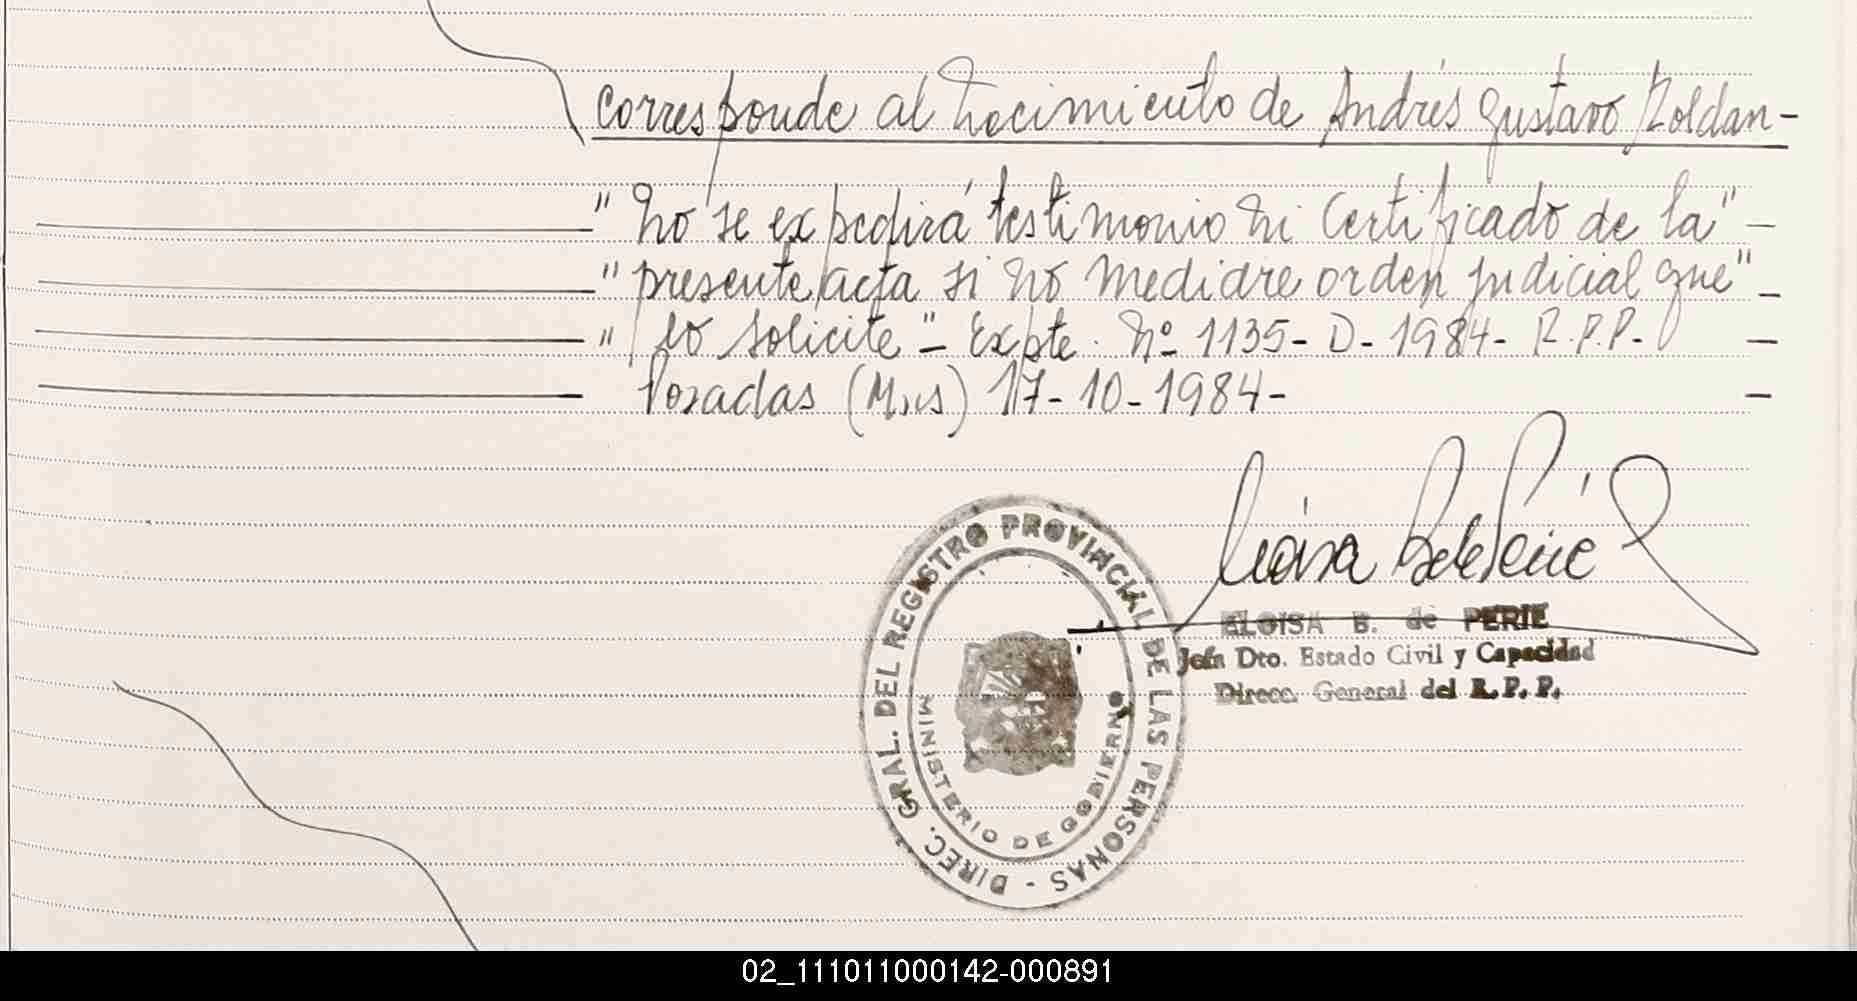 Corresponde al Nacimiento de Andrés Gustavo Roldan-
"No se expedirá testimonio ni certificado de la" -
"presente acta si no mediare orden judicial que" -
" lo solicite"- Expte. Nº 1135- D- 1984- R.P.P. -
Posadas (Mnes) 17-10-1984- -
DIREC. GRAL. DEL REGISTRO PROVINCIAL DE LAS PERSONAS -
MINISTERIO DE GOBIERNO
ELOISA B. de PERIE
Jefa Dto. Estado Civil y Capacidad
Direcc. General del R. P. P.
02_111011000142-000891